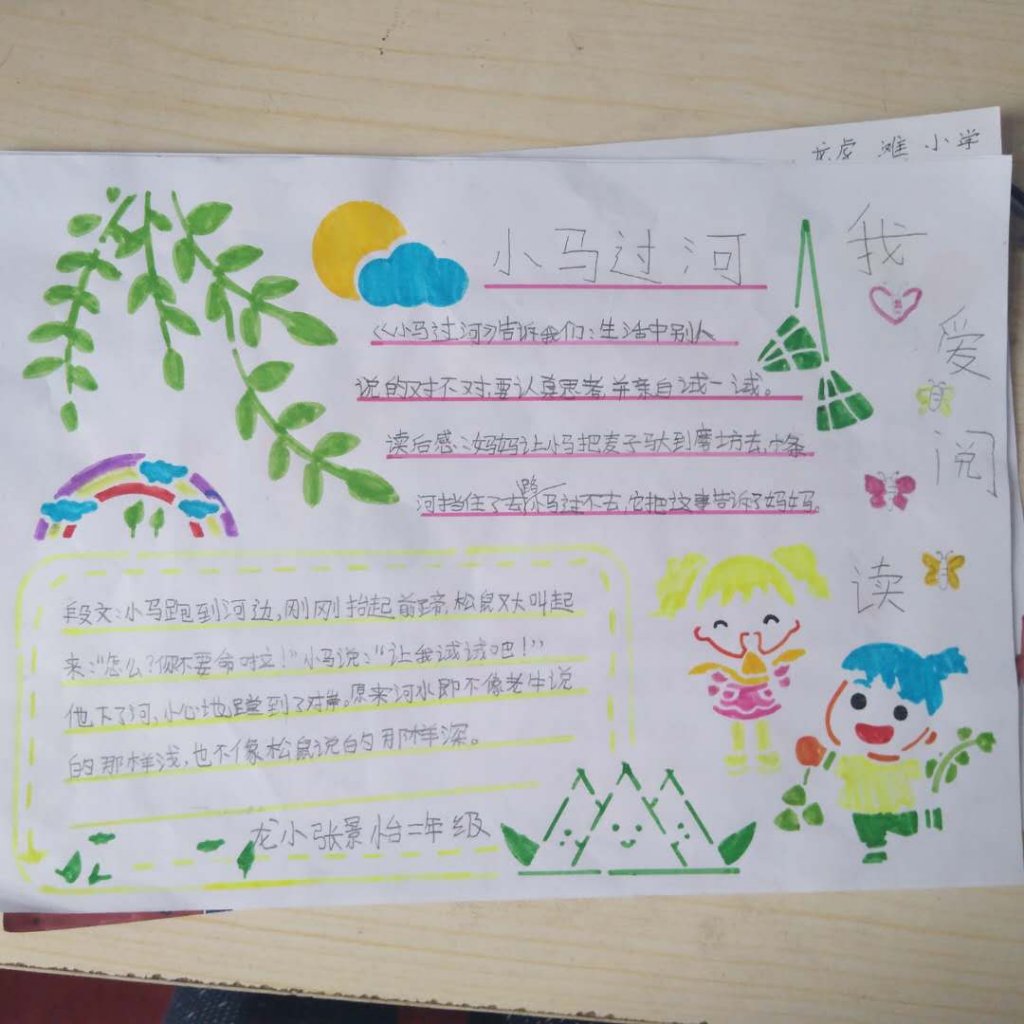 虎滩小学
小马过河
我爱阅读
《小马过河》告诉我们:生活中别人
说的对不对,要认真思考,并亲自试一试。
读后感:妈妈让小马把麦子驮到磨坊去,一条
河挡住了去路小马过不去,它把这事告诉了妈妈。
段文:小马跑到河边,刚刚抬起前蹄,松鼠又大叫起
来:“怎么?你不要命啦!”小马说:“让我试试吧!”
他下了河,小心地蹚到了对岸。原来河水即不像老牛说
的那样浅,也不像松鼠说的那样深。
龙小张景怡二年级